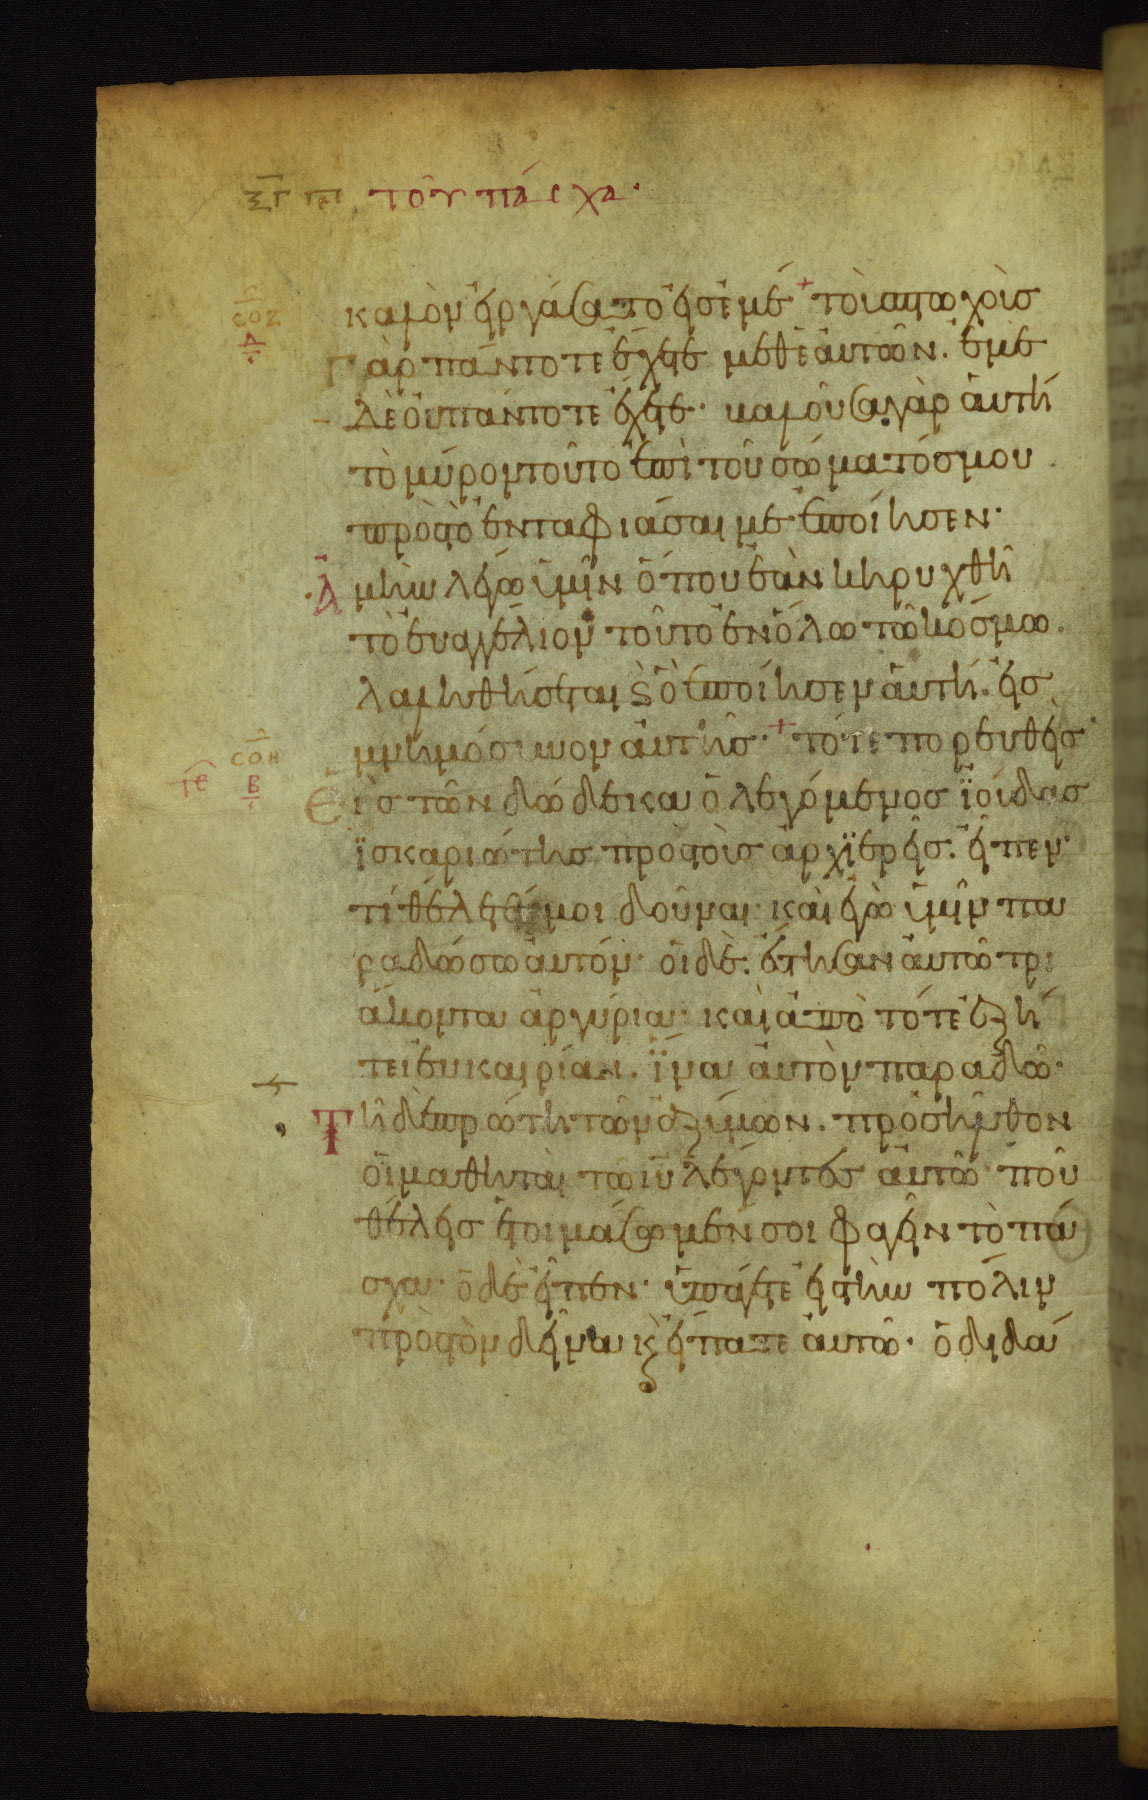 ξγ πε τοῦ πάσχα·
σοζ
δ
καλὸν εἰργάσατο εἰς ἐμέ + τοὺς πτωχοὺς
γὰρ πάντοτε ἔχετε μεθ ἑαυτῶν. ἐμὲ
δὲ οὐ πάντοτε ἔχετε· βαλοῦσα γὰρ αὐτὴ
τὸ μύρον τοῦτο ἐπὶ τοῦ σώματός μου
πρὸς τὸ ἐνταφιάσαι με ἐποίησεν·
Ἀμὴν λέγω ὑμῖν ὅπου ἐὰν κηρυχθῆ
τὸ εὐαγγέλιον τοῦτο ἐν ὅλω τῶ κόσμω.
λαληθήσεται ϗ ὃ ἐποίησεν αὐτὴ· εἰς
μνημόσυνον αὐτῆς· + τότε πορευθεὶς
σοη
β
ιε
Εἷς τῶν δώδεκα ὁ λεγόμενος ϊούδας
ϊσκαριώτης πρὸς τοὺς ἀρχϊερεῖς· εἶπεν·
τί θέλετέ μοι δοῦναι· καὶ ἐγὼ ὑμῖν πα
ραδώσω αὐτόν· οἱ δὲ ἔστησαν αὐτῶ τρι
άκοντα ἀργύρια· καὶ ἀπὸ τότε ἐζή
τει εὐκαιρίαν. ἵνα αὐτὸν παραδῶ·
Τῆ δὲ πρώτη τῶν ἀζύμων. προσῆλθον
οἱ μαθηταὶ τῶ ιυ λέγοντες αὐτῶ· ποῦ
θέλεις ἑτοιμάσωμέν σοι φαγεῖν τὸ πά
σχα· ὁ δὲ εἶπεν· ὑπάγετε εἰς τὴν πόλιν
πρὸς τὸν δεῖνα ϗ εἴπατε αὐτῶ· ὁ διδά